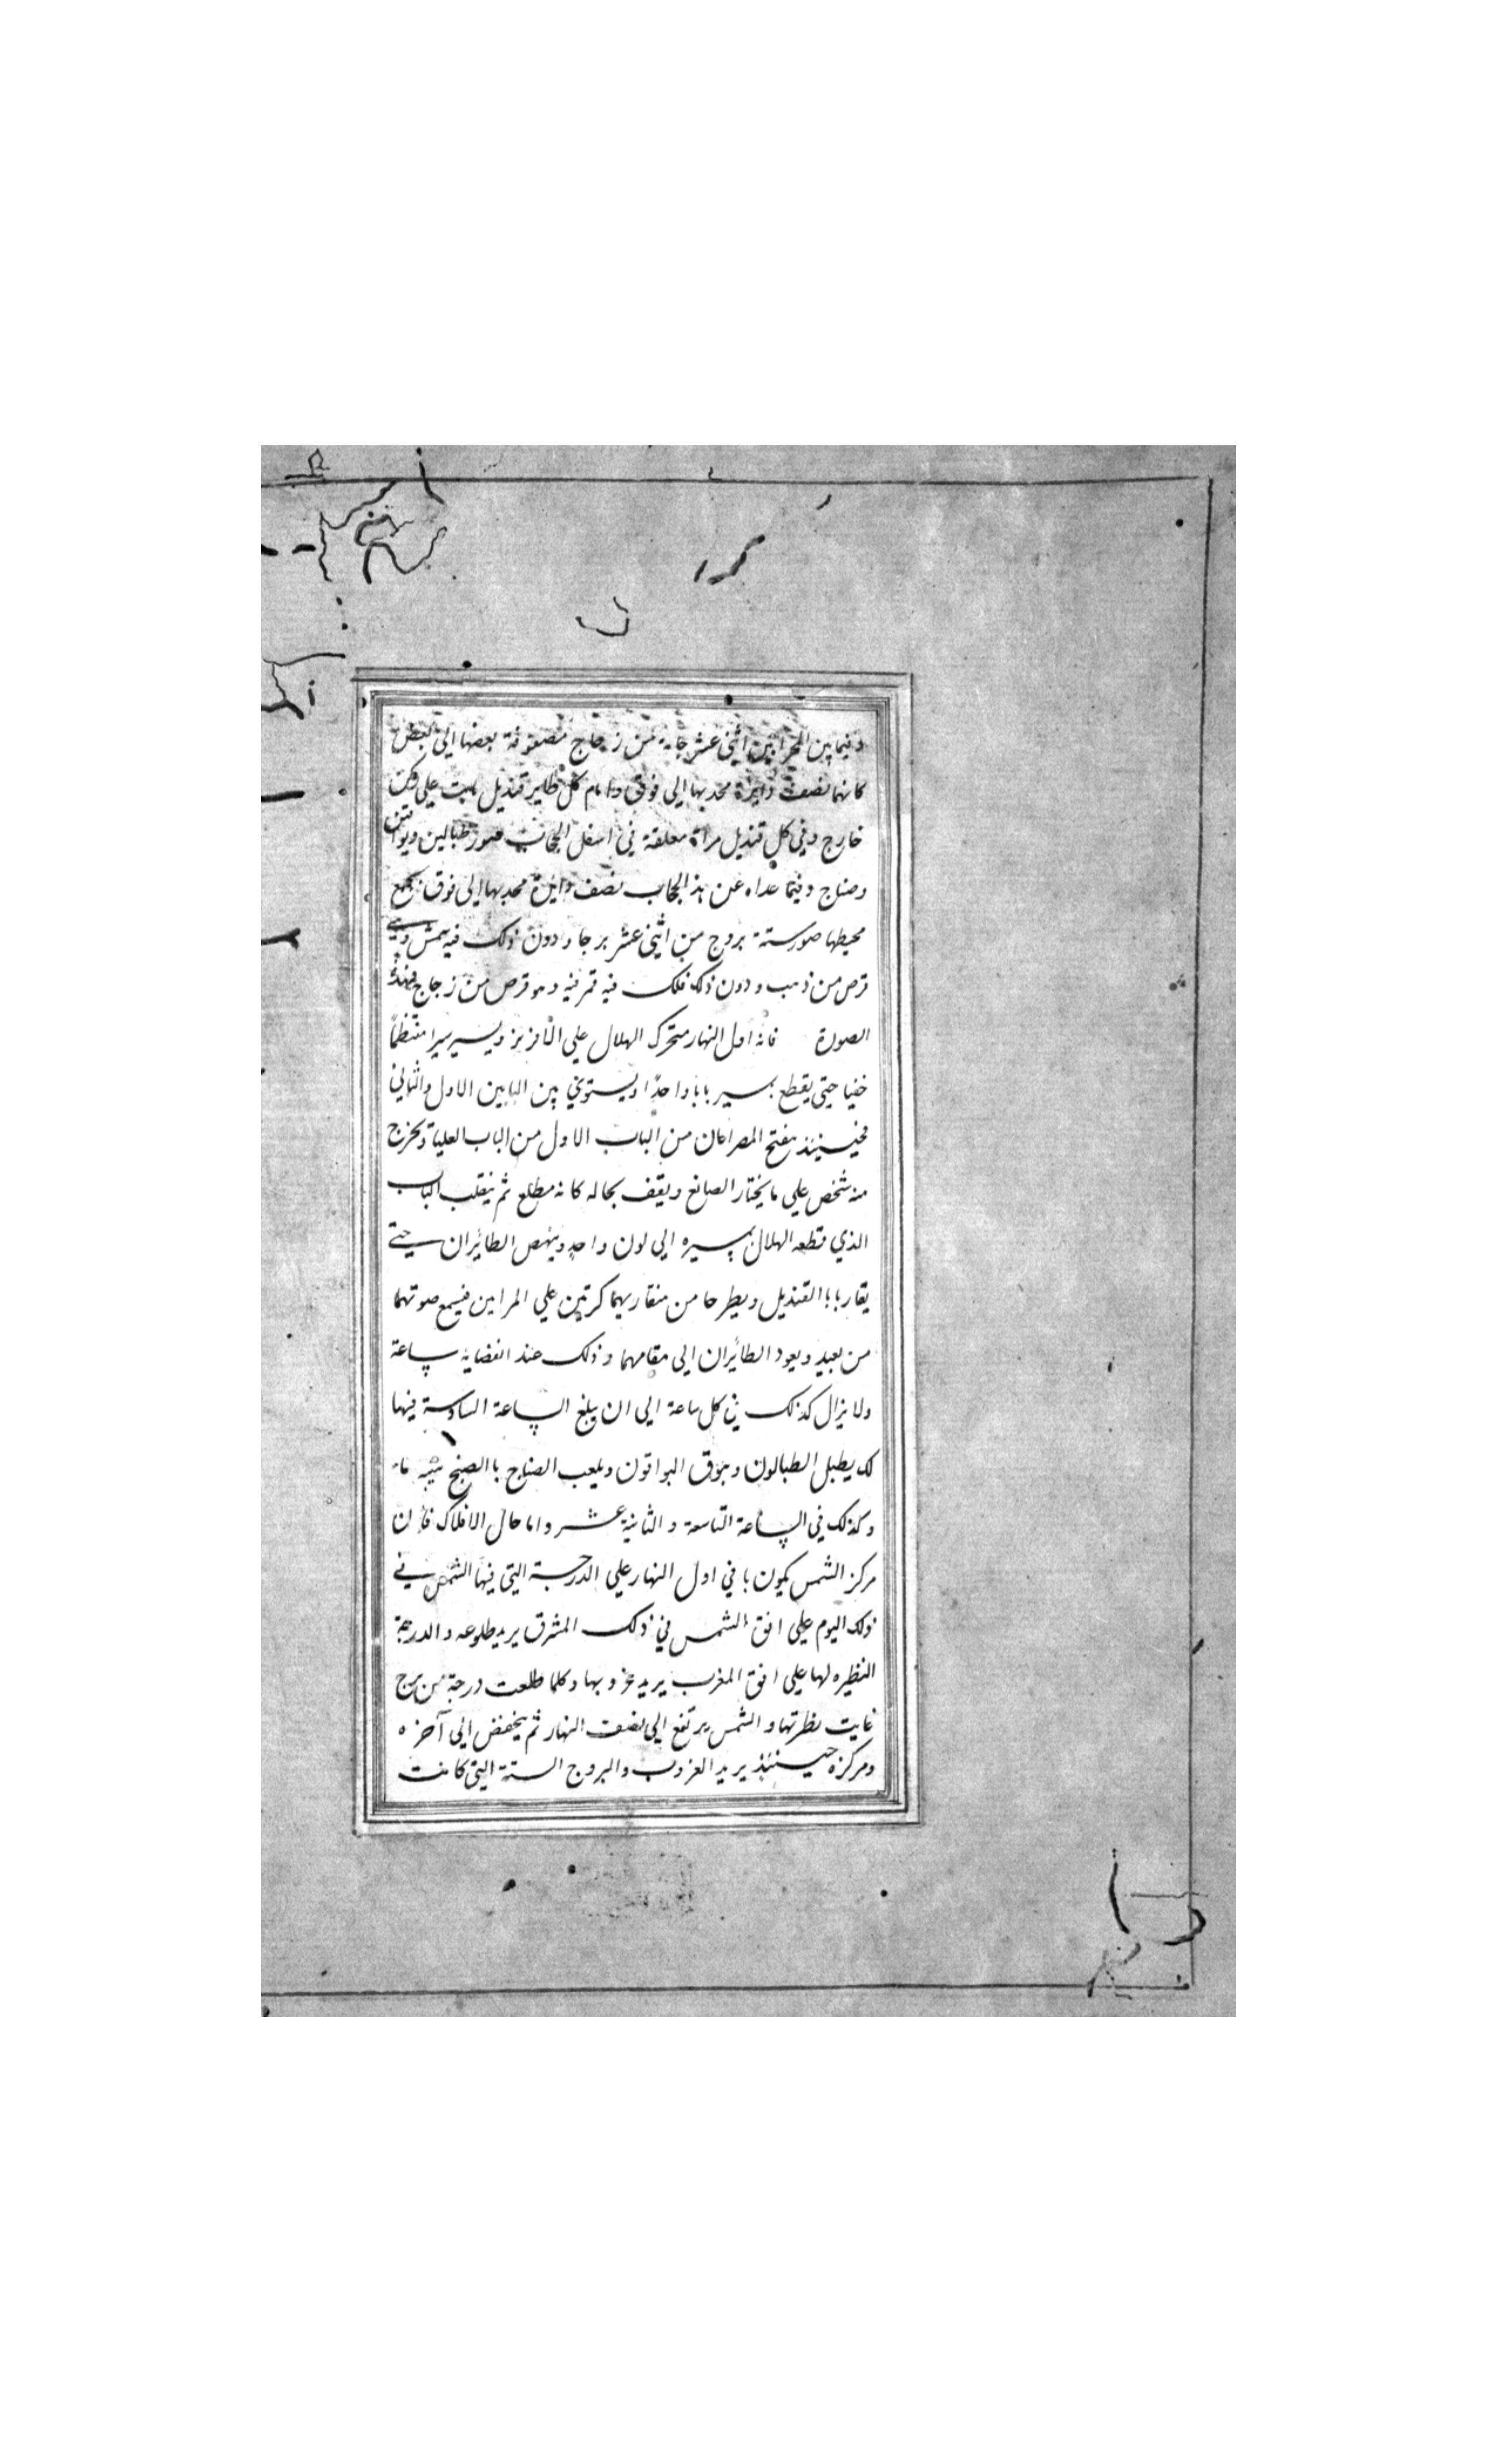 وفيما بين المحرابين اثني عشر جامة من زجاج مصفوفة بعضها الي البعض
كانها نصف دايرة محدبها الي فوق وامام كل طاير قنديل علي ركن
خارج وفي كل قنديل مراة معلقة في اسفل الحجاب صور طبالين وبواقين
وصناج وفيما عداه عن هذ الحجاب نصف دايرة محدبها الي فوق بجمع
محيطها صور ستة بروج من اثني عشر برجا ودون ذلك فيه شمس وهي
قرص من ذهب ودون ذلك فلك فيه قمر فيه وهو قرص من زجاج فهذه
الصورة فانه اول النهار متحرك الهلال علي الافريز ويسير سيرا منتظما
خفيا حتي يقطع بسير بابا واحدا ويستوي بين البابين الاول والثاني
فحينئذ يفتح المصراعان من الباب الاول من الباب العلياة ويخرج
منه شخص علي ما يختار الصانع ويقف بحاله كانه مطلع ثم ينقلب الباب
الذي قطعه الهلال بسيره الي لون واحد وينهض الطائران حتي
يقاربا القنديل ويطرحا من منقاريهما كرتين علي المرايين فيسمع صوتهما
من بعيد ويعود الطائران الي مقامهما وذلك عند انقضايه ساعة
ولا يزال كذلك في كل ساعة الي ان يبلغ الساعة السادسة فيها
لك يطبل الطبالون وبوق البواقون ويلعب الصناج باالصنج
وكذلك في الساعة التاسعة والثانية عشر واما حال الافلاك فان
مركز الشمس يكون با في اول النهار علي الدرجة التي فيها الشمس في
ذلك اليوم علي افق الشمس في ذلك المشرق يريد طلوعه والدرجة
النظيره لها علي افق المغرب يريد غروبها وكلما طلعت درجة من برج
غابت نظرتها والشمس يرتفع الي نصف النهار ثم ينخفض الي آخره
ومركزه حينئذ يريد الغروب والبروج الستة التي كانت